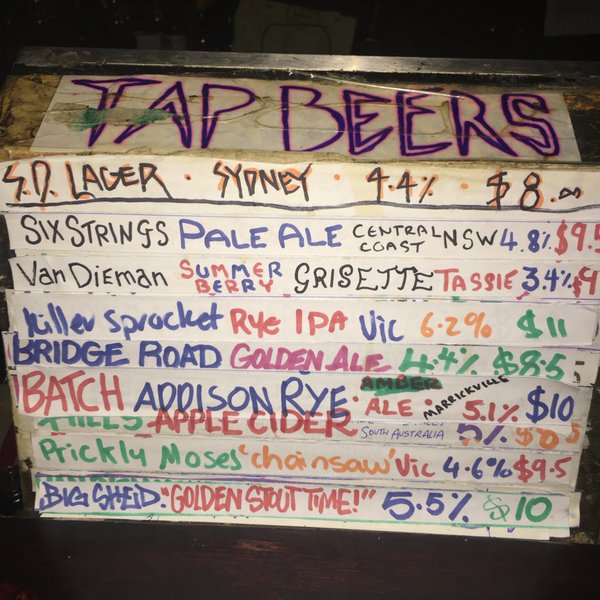 TAP BEERS
S.D. LAGER · SYDNEY · 4.4% · $8.00
SIX STRINGS PALE ALE CENTRAL COAST NSW 4.8% $9.5
Van Dieman SUMMER BERRY GRISETTE TASSIE 3.4% $9
Killer Sprocket Rye IPA Vic 6.2% $11
BRIDGE ROAD GOLDEN ALE 4.4% $8.5
BATCH ADDISON RYE · AMBER ALE · MARRICKVILLE 5.1% $10
HILLS APPLE CIDER SOUTH AUSTRALIA 5% $8.5
Prickly Moses 'chainsaw' Vic 4.6% $9.5
BIG SHED "GOLDEN STOUT TIME!" 5.5% $10